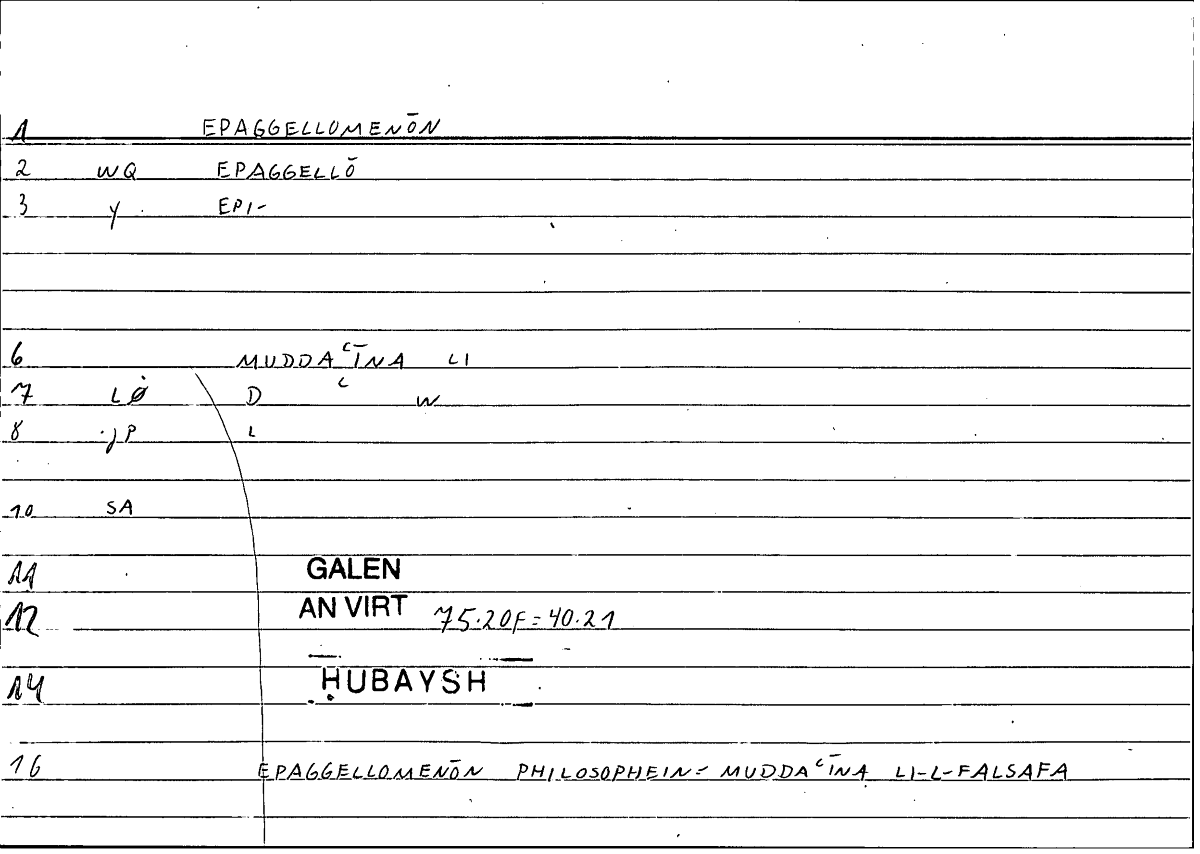 1 EPAGGELLOMENŌN
2 WQ EPAGGELLŌ
3 Y EPI-
6 MUDDAʿĪNA LI
7 LØ D ʿ W
8 jP L
10 SA
11 GALEN
12 AN VIRT 75.20F=40.21
14 ḤUBAYSH
16 EPAGGELLOMENŌN PHILOSOPHEIN= MUDDAʿĪNA LI-L-FALSAFA